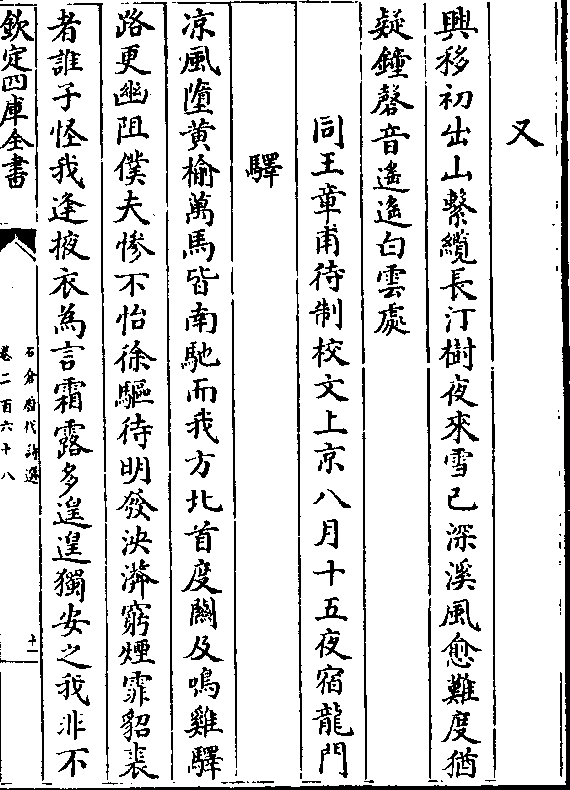 又
興移初出山繫纜長汀樹夜來雪已深溪風愈難度猶
疑鐘磬音遙遙白雲處
同王章甫待制校文上京八月十五夜宿龍門
驛
凉風墮黄榆萬馬皆南馳而我方北首度關及鳴雞驛
路更幽阻僕夫慘不怡徐驅待明發泱漭窮煙霏貂裘
者誰子怪我逢掖衣為言霜露多遑遑獨安之我非不
欽定四庫全書
石倉歷代詩選
卷二百六十八
十